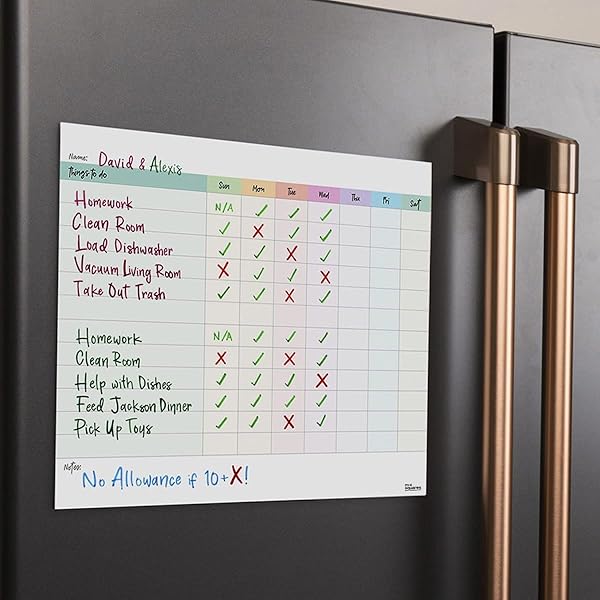 Name: David & Alexis
Things to do Sun Mon Tue Wed Thu Fri Sat
Homework N/A ✓ ✓ ✓
Clean Room ✓ X ✓ ✓
Load Dishwasher ✓ ✓ X ✓
Vacuum Living Room X ✓ ✓ X
Take Out Trash ✓ ✓ X ✓
Homework N/A ✓ ✓ ✓
Clean Room X ✓ X ✓
Help with Dishes ✓ ✓ ✓ X
Feed Jackson Dinner ✓ ✓ ✓ ✓
Pick Up Toys ✓ ✓ X ✓
Notes: No Allowance if 10+X!